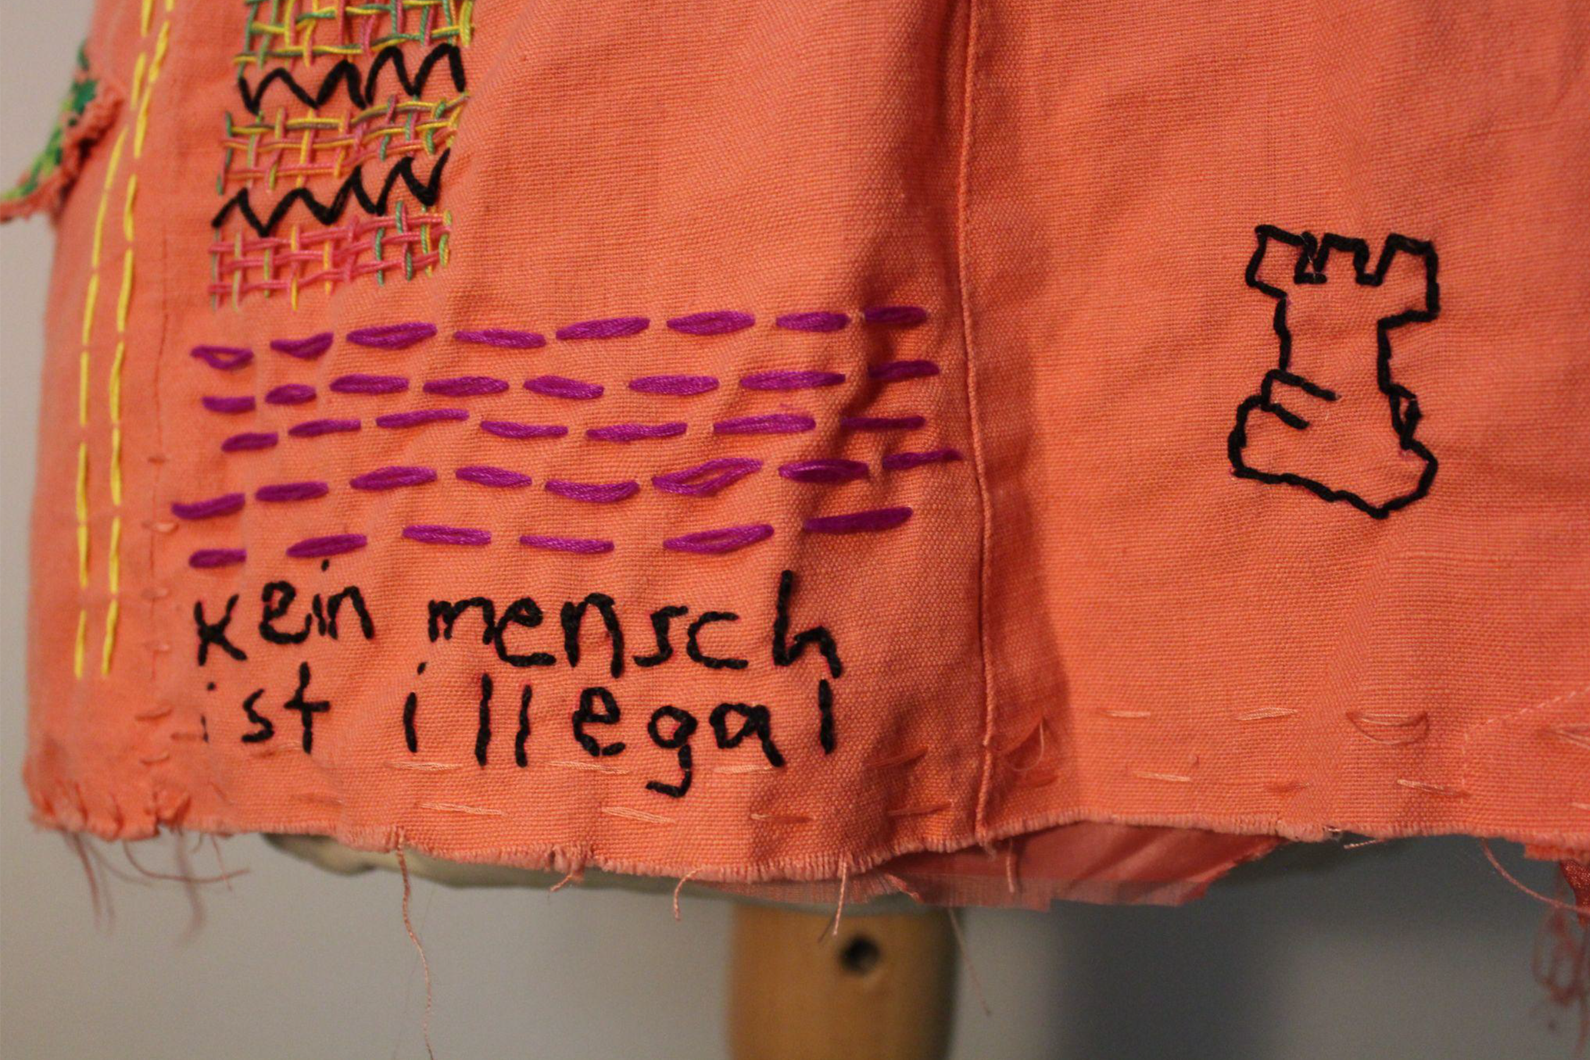 kein mensch
ist illegal